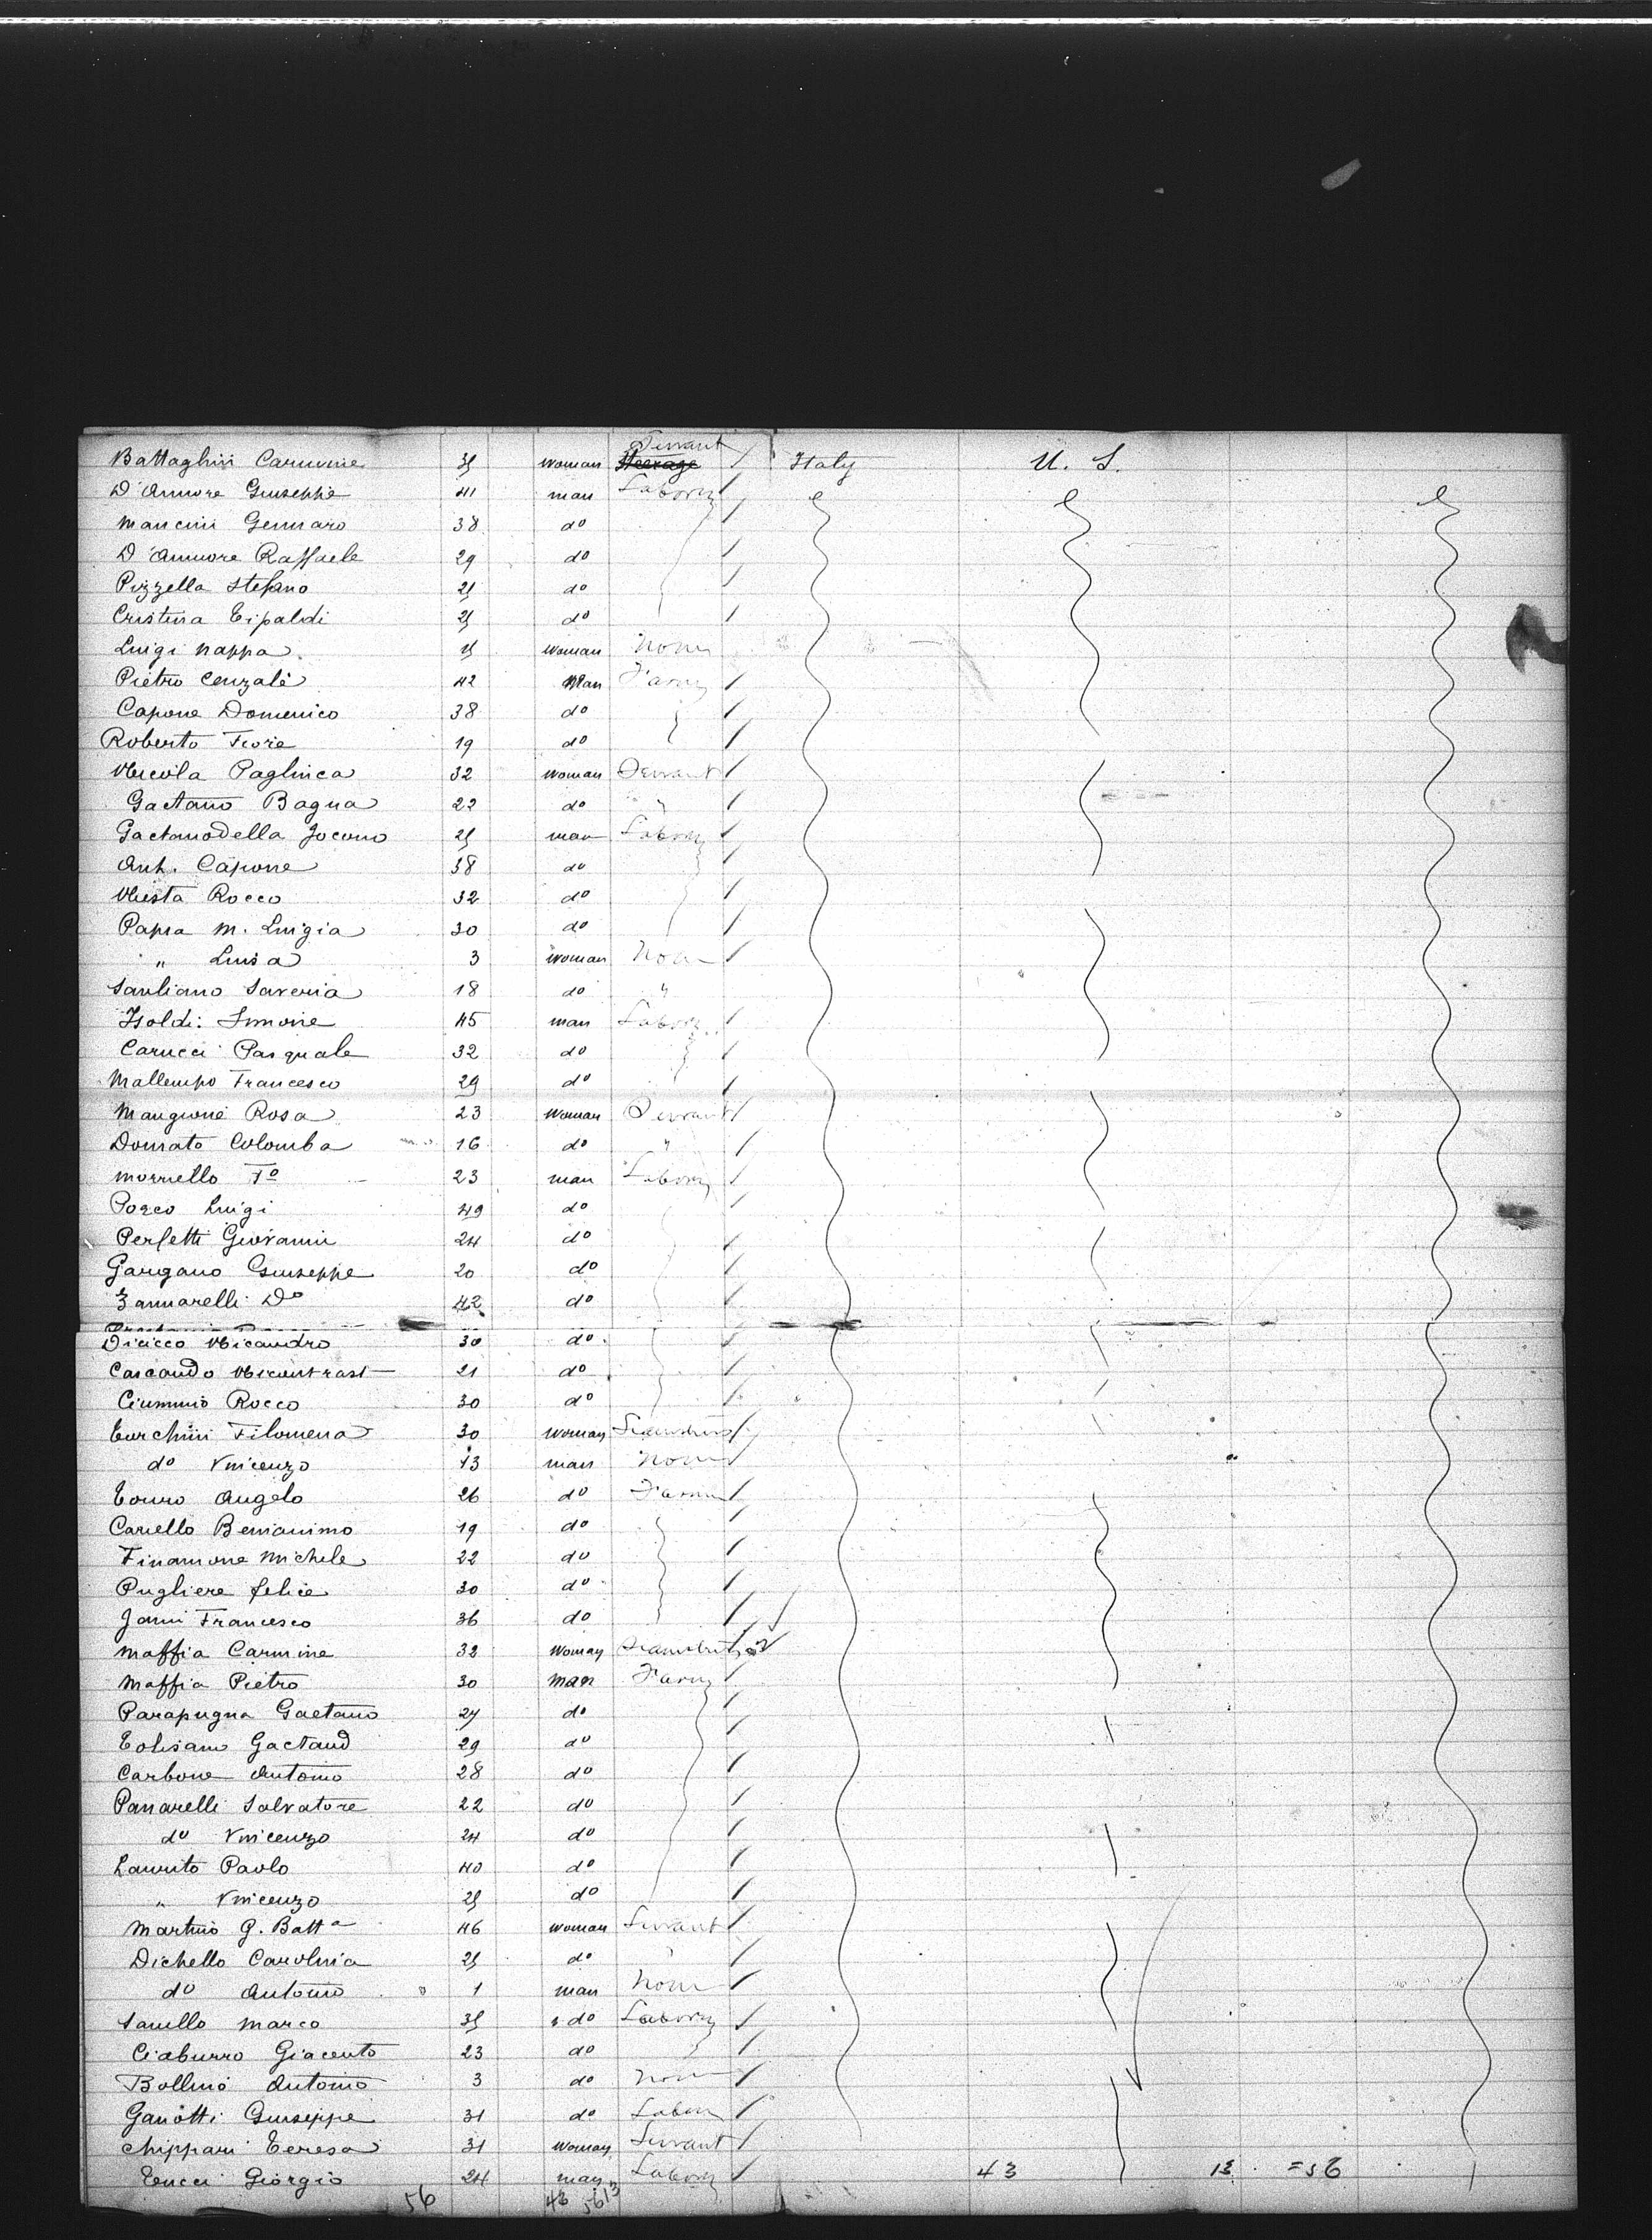 Servant
Battaglini Carmine 35 woman Steerage Italy U. S.
D'Amore Giuseppe 41 man Laborer
Mancini Gennaro 38 do
D'Amore Raffaele 29 do
Pizzella Stefano 25 do
Cristina Tipaldi 25 do
Luigi Nappa woman None
Pietro Cenzale 42 Man Farmer
Capone Domenico 38 do
Roberto Fiore 19 do
Nicola Paglinca 32 woman Servant
Gaetano Bagna 22 do "
Gaetano della Jocono 25 man Laborer
Ant. Capone 38 do
Nesta Rocco 32 do
Papra M. Luigia 30 do
" Luisa 3 woman None
Santiano Saveria 18 do "
Isoldi Simone 45 man Laborer
Carucci Pasquale 32 do
Mallempo Francesco 29 do
Mangione Rosa 23 woman Servant
Donato Colomba 16 do "
Morriello Fo 23 man Laborer
Porco Luigi 49 do
Perfetti Giovanni 24 do
Gargano Giuseppe 20 do
Zannarelli Do 42 do
Dicicco Nicandro 30 do
Cascando 21 do
Ciummo Rocco 30 do
Turchini Filomena 30 woman Seamstress
do Vincenzo 13 man None
Touro Angelo 26 do Farmer
Cariello Beniamino 19 do
Finamore Michele 22 do
Pugliere Felice 30 do
Janni Francesco 36 do
Maffia Carmine 32 woman Seamstress
Maffia Pietro 30 man Farmer
Parapugna Gaetano 24 do
Tolisano Gaetano 29 do
Carbone Antonio 28 do
Panarelli Salvatore 22 do
do Vincenzo 24 do
Laurito Paolo 40 do
" Vincenzo 25 do
Martino G. Batta 46 woman Servant
Dichello Carolina 25 do "
do Antonio 1 man None
Sanello Marco 35 do Laborer
Ciaburro Giacento 23 do
Bollino Antonio 3 do None
Ganotti Giuseppe 31 do Laborer
Chippari Teresa 31 woman Servant
Tucci Giorgio 24 man Laborer 43 13 = 56
56 43 56 13